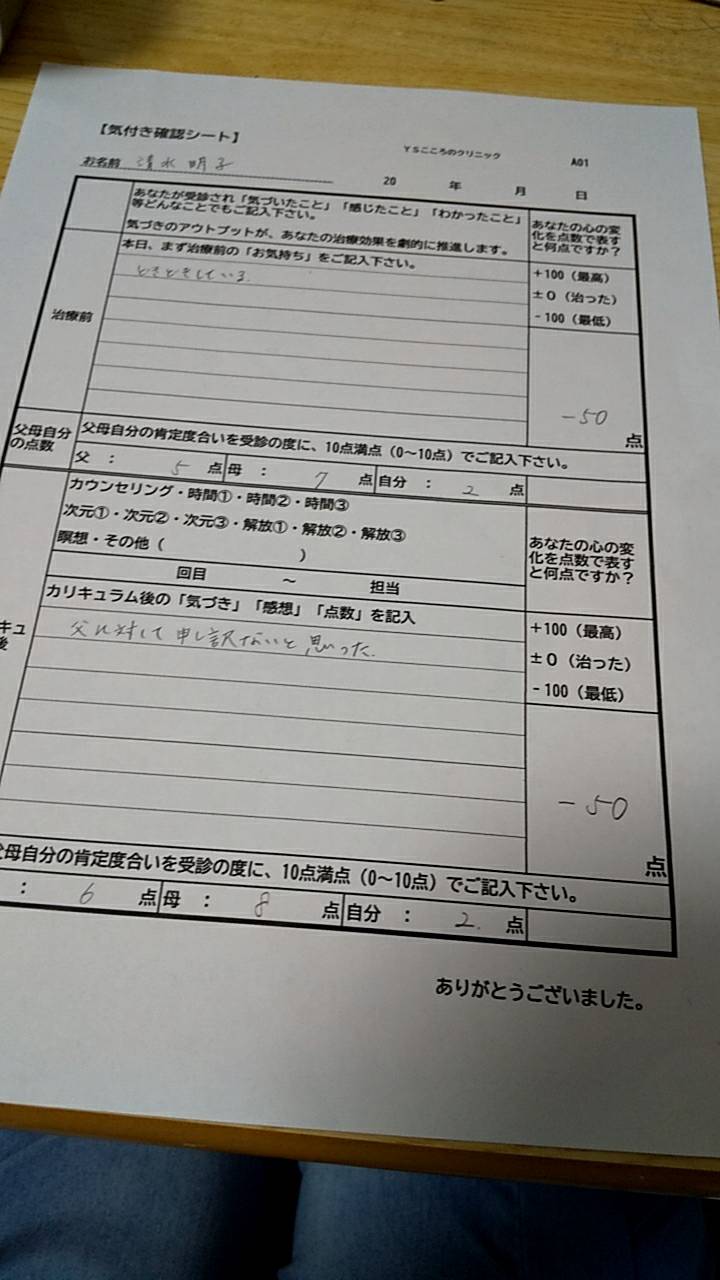 【気付き確認シート】
YSこころのクリニック
A01
お名前 清水 明子
20 年 月 日
あなたが受診され「気づいたこと」「感じたこと」「わかったこと」
等どんなことでもご記入下さい。
気づきのアウトプットが、あなたの治療効果を劇的に推進します。
あなたの心の変
化を点数で表す
と何点ですか？
治療前
本日、まず治療前の「お気持ち」をご記入下さい。
どきどきしている.
+100（最高）
±0（治った）
-100（最低）
-50 点
父母自分
の点数
父母自分の肯定度合いを受診の度に、10点満点（0～10点）でご記入下さい。
父 ： 5 点 母 ： 7 点 自分 ： 2 点
カウンセリング・時間①・時間②・時間③
次元①・次元②・次元③・解放①・解放②・解放③
瞑想・その他（ ）
回目 ～ 担当
あなたの心の変
化を点数で表す
と何点ですか？
キュ
後
カリキュラム後の「気づき」「感想」「点数」を記入
父に対して申し訳ないと思った.
+100（最高）
±0（治った）
-100（最低）
-50 点
父母自分の肯定度合いを受診の度に、10点満点（0～10点）でご記入下さい。
： 6 点 母 ： 8 点 自分 ： 2. 点
ありがとうございました。